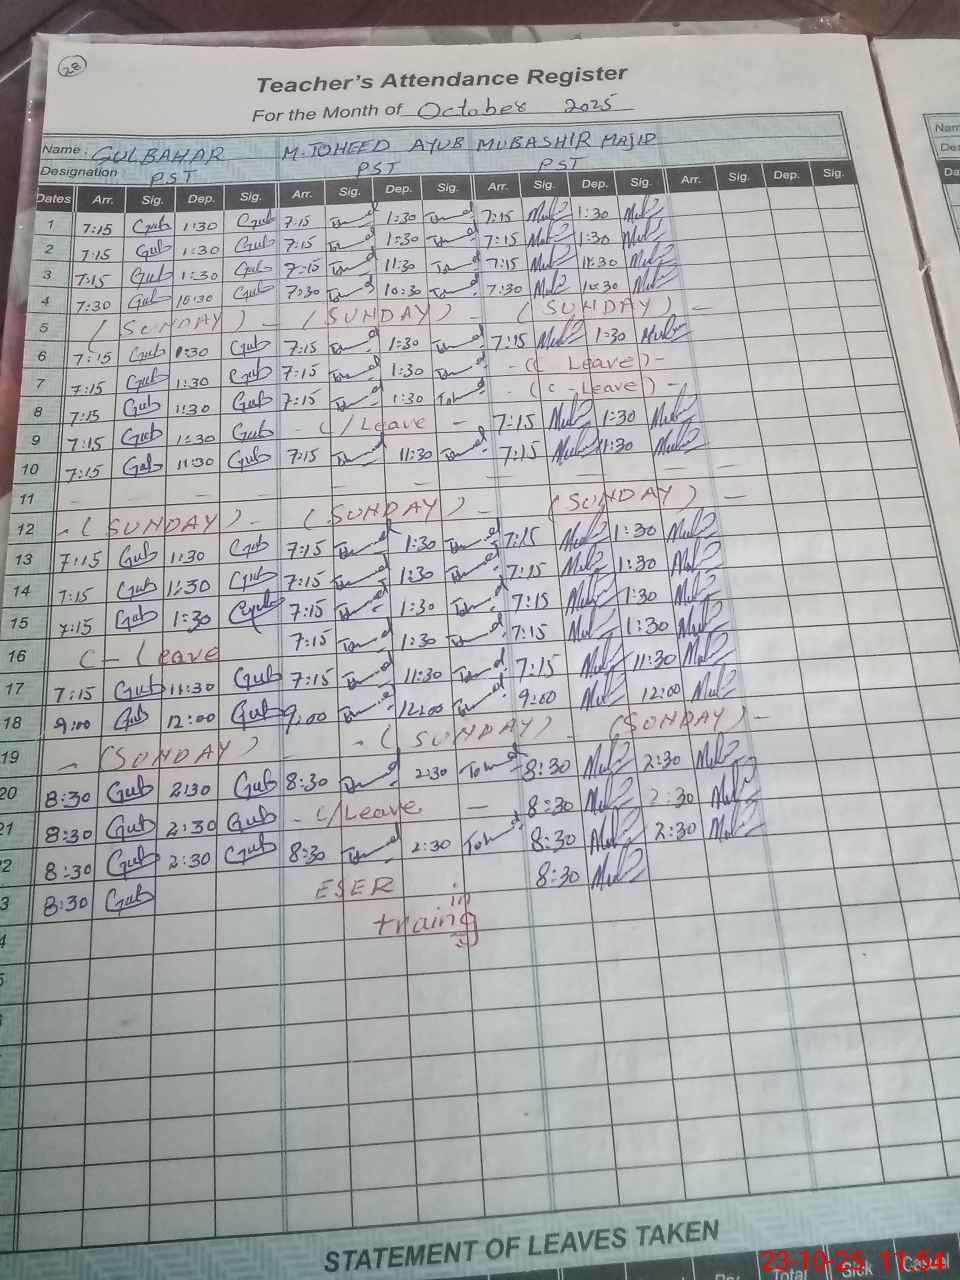 28
Teacher's Attendance Register
For the Month of October 2025
Name : GULBAHAR M. TOHEED AYUB MUBASHIR MAJID
Designation PST PST PST
Dates Arr. Sig. Dep. Sig. Arr. Sig. Dep. Sig. Arr. Sig. Dep. Sig. Arr. Sig. Dep. Sig.
1 7:15 Gub 1:30 Gub 7:15 1:30 7:15 1:30
2 7:15 Gub 1:30 Gub 7:15 1:30 7:15 1:30
3 7:15 Gub 1:30 Gub 7:15 11:30 7:15 11:30
4 7:30 Gub 10:30 Gub 7:30 10:30 7:30 10:30
5 (SUNDAY) - (SUNDAY) - (SUNDAY) -
6 7:15 Gub 1:30 Gub 7:15 1:30 7:15 1:30
7 7:15 Gub 1:30 Gub 7:15 1:30 - (C Leave) -
8 7:15 Gub 1:30 Gub 7:15 1:30 - (C - Leave) -
9 7:15 Gub 1:30 Gub - C/Leave - 7:15 1:30
10 7:15 Gub 11:30 Gub 7:15 11:30 7:15 11:30
11 - - - - - - - - - - -
12 - (SUNDAY) - (SUNDAY) - (SUNDAY) -
13 7:15 Gub 1:30 Gub 7:15 1:30 7:15 1:30
14 7:15 Gub 1:30 Gub 7:15 1:30 7:15 1:30
15 7:15 Gub 1:30 Gub 7:15 1:30 7:15 1:30
16 C - Leave 7:15 1:30 7:15 1:30
17 7:15 Gub 11:30 Gub 7:15 11:30 7:15 11:30
18 9:00 Gub 12:00 Gub 9:00 12:00 9:00 12:00
19 - (SUNDAY) - (SUNDAY) - (SUNDAY) -
20 8:30 Gub 2:30 Gub 8:30 2:30 8:30 2:30
21 8:30 Gub 2:30 Gub - C/Leave - 8:30 2:30
2 8:30 Gub 2:30 Gub 8:30 2:30 8:30 2:30
3 8:30 Gub ESER 8:30
4 traing
5
STATEMENT OF LEAVES TAKEN
Total Sick Casual
23-10-25 11:54
Nam
Des
Da